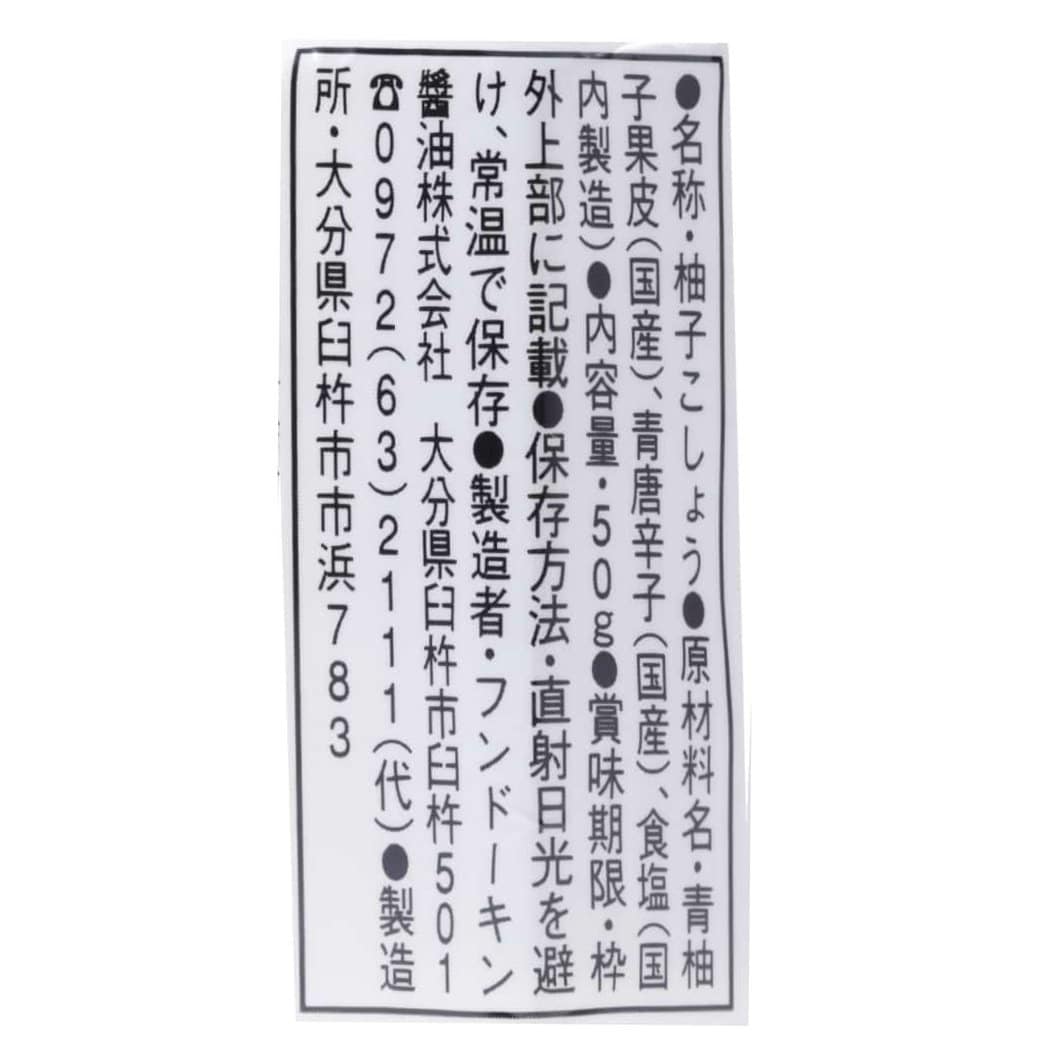 ●名称・柚子こしょう●原材料名・青柚
子果皮(国産)、青唐辛子(国産)、食塩(国
内製造)●内容量・50g●賞味期限・枠
外上部に記載●保存方法・直射日光を避
け、常温で保存●製造者・フンドーキン
醬油株式会社　大分県臼杵市臼杵501
☎0972(63)2111(代)●製造
所・大分県臼杵市市浜783